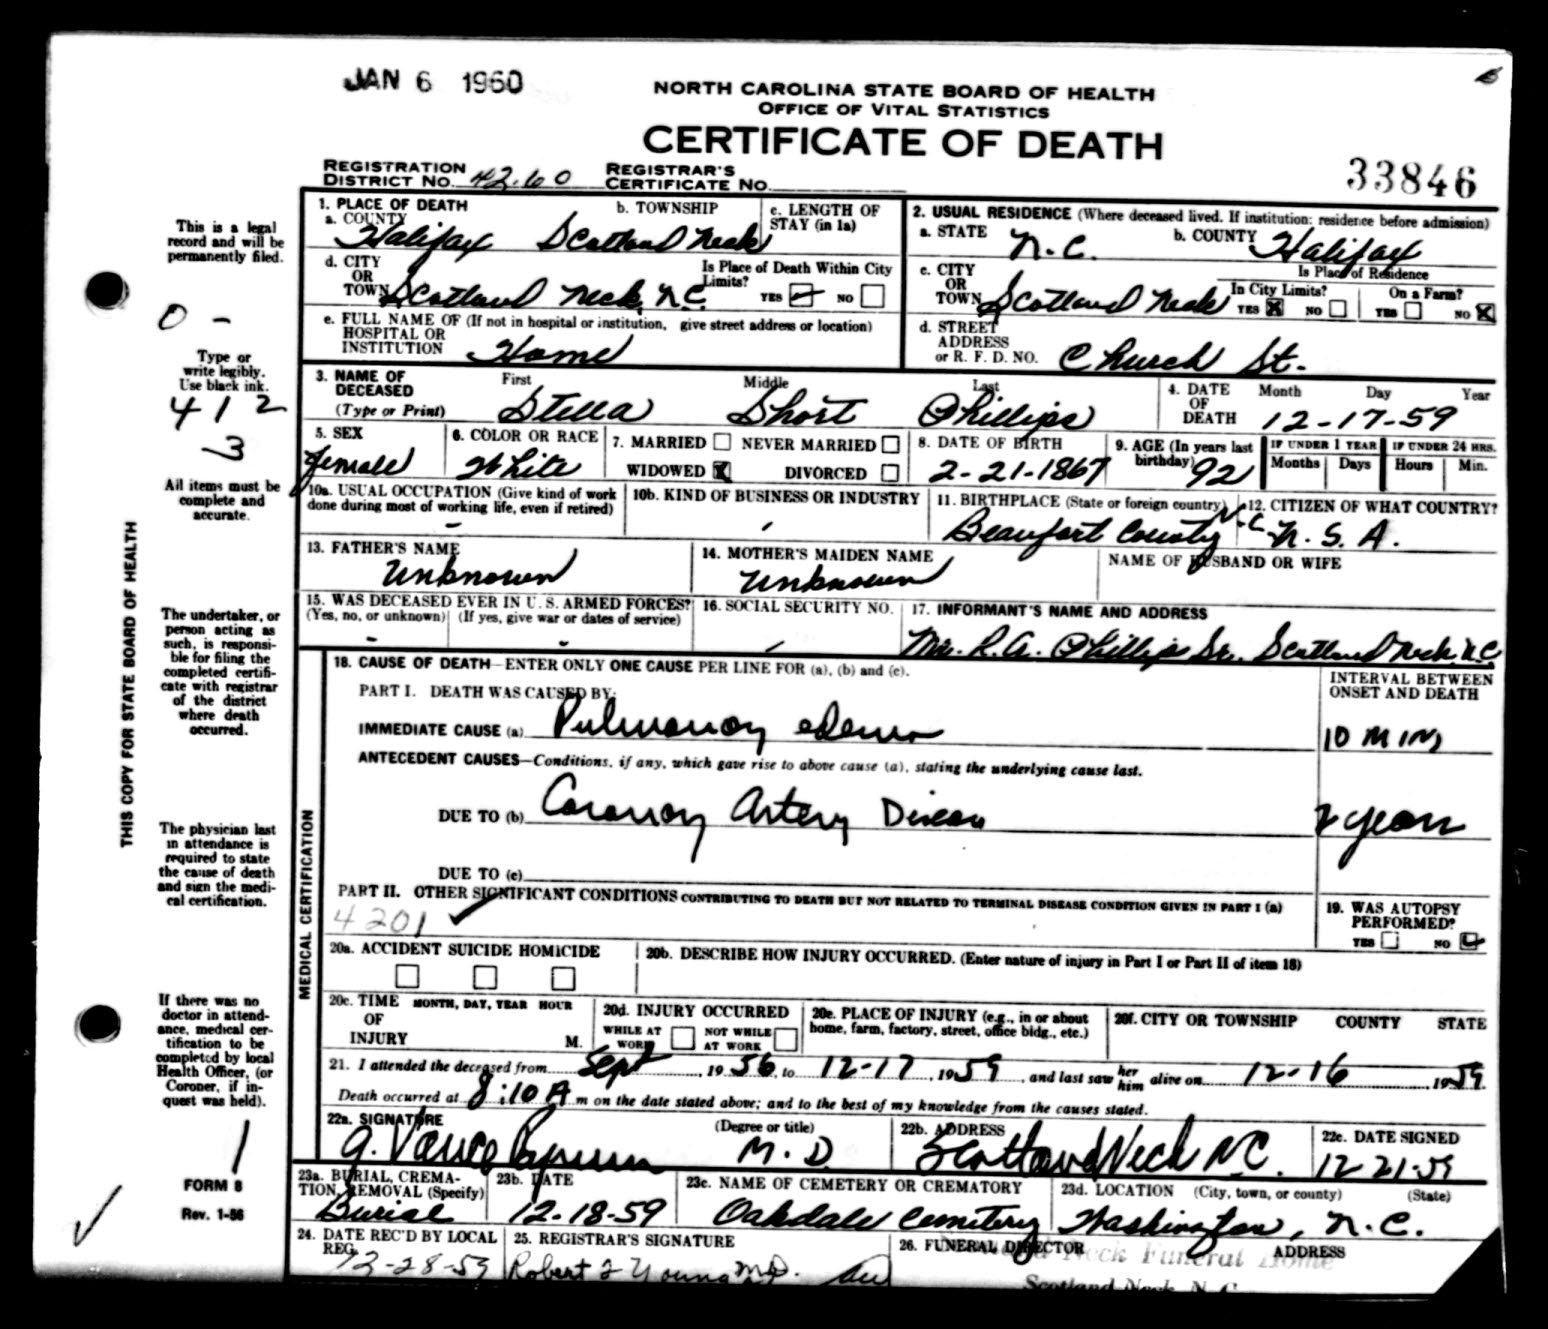 JAN 6 1960
NORTH CAROLINA STATE BOARD OF HEALTH
OFFICE OF VITAL STATISTICS
CERTIFICATE OF DEATH
33846
REGISTRATION DISTRICT NO. 42.60 REGISTRAR'S CERTIFICATE NO.
This is a legal record and will be permanently filed.
0 -
Type or write legibly. Use black ink.
412
-3
All items must be complete and accurate.
THIS COPY FOR STATE BOARD OF HEALTH
The undertaker, or person acting as such, is responsible for filing the completed certificate with registrar of the district where death occurred.
The physician last in attendance is required to state the cause of death and sign the medical certification.
If there was no doctor in attendance, medical certification to be completed by local Health Officer, (or Coroner, if inquest was held).
1
FORM 8
Rev. 1-56
1. PLACE OF DEATH
a. COUNTY Halifax b. TOWNSHIP Scotland Neck c. LENGTH OF STAY (in 1a)
d. CITY OR TOWN Scotland Neck, N.C. Is Place of Death Within City Limits? YES NO
e. FULL NAME OF (If not in hospital or institution, give street address or location) HOSPITAL OR INSTITUTION Home
2. USUAL RESIDENCE (Where deceased lived. If institution: residence before admission)
a. STATE N.C. b. COUNTY Halifax
c. CITY OR TOWN Scotland Neck Is Place of Residence In City Limits? YES X NO On a Farm? YES NO X
d. STREET ADDRESS or R. F. D. NO. Church St.
3. NAME OF DECEASED (Type or Print) First Stella Middle Short Last Phillips
4. DATE OF DEATH Month Day Year 12-17-59
5. SEX female
6. COLOR OR RACE White
7. MARRIED NEVER MARRIED WIDOWED X DIVORCED
8. DATE OF BIRTH 2-21-1867
9. AGE (In years last birthday) 92 IF UNDER 1 YEAR Months Days IF UNDER 24 HRS. Hours Min.
10a. USUAL OCCUPATION (Give kind of work done during most of working life, even if retired) -
10b. KIND OF BUSINESS OR INDUSTRY
11. BIRTHPLACE (State or foreign country) Beaufort County N.C.
12. CITIZEN OF WHAT COUNTRY? U.S.A.
13. FATHER'S NAME Unknown
14. MOTHER'S MAIDEN NAME Unknown
NAME OF HUSBAND OR WIFE
15. WAS DECEASED EVER IN U.S. ARMED FORCES? (Yes, no, or unknown) - (If yes, give war or dates of service) -
16. SOCIAL SECURITY NO.
17. INFORMANT'S NAME AND ADDRESS
Mr. R.A. Phillips Sr. Scotland Neck, N.C.
MEDICAL CERTIFICATION
18. CAUSE OF DEATH—ENTER ONLY ONE CAUSE PER LINE FOR (a), (b) and (c).
INTERVAL BETWEEN ONSET AND DEATH
PART I. DEATH WAS CAUSED BY:
IMMEDIATE CAUSE (a) Pulmonary edema 10 MIN
ANTECEDENT CAUSES—Conditions, if any, which gave rise to above cause (a), stating the underlying cause last.
DUE TO (b) Coronary Artery Disease years
DUE TO (c)
PART II. OTHER SIGNIFICANT CONDITIONS CONTRIBUTING TO DEATH BUT NOT RELATED TO TERMINAL DISEASE CONDITION GIVEN IN PART I (a)
4201
19. WAS AUTOPSY PERFORMED? YES NO
20a. ACCIDENT SUICIDE HOMICIDE
20b. DESCRIBE HOW INJURY OCCURRED. (Enter nature of injury in Part I or Part II of item 18)
20c. TIME OF INJURY MONTH, DAY, YEAR HOUR M.
20d. INJURY OCCURRED WHILE AT WORK NOT WHILE AT WORK
20e. PLACE OF INJURY (e.g., in or about home, farm, factory, street, office bldg., etc.)
20f. CITY OR TOWNSHIP COUNTY STATE
21. I attended the deceased from Sept, 1956, to 12-17, 1959, and last saw her him alive on 12-16 1959.
Death occurred at 8:10 A m on the date stated above; and to the best of my knowledge from the causes stated.
22a. SIGNATURE G. Vance Byrum (Degree or title) M.D.
22b. ADDRESS Scotland Neck N.C.
22c. DATE SIGNED 12-21-59
23a. BURIAL, CREMATION, REMOVAL (Specify) Burial
23b. DATE 12-18-59
23c. NAME OF CEMETERY OR CREMATORY Oakdale Cemetery
23d. LOCATION (City, town, or county) (State) Washington, N.C.
24. DATE REC'D BY LOCAL REG. 12-28-59
25. REGISTRAR'S SIGNATURE Robert F Young M.D.
26. FUNERAL DIRECTOR ADDRESS
Neck Funeral Home
Scotland Neck N.C.